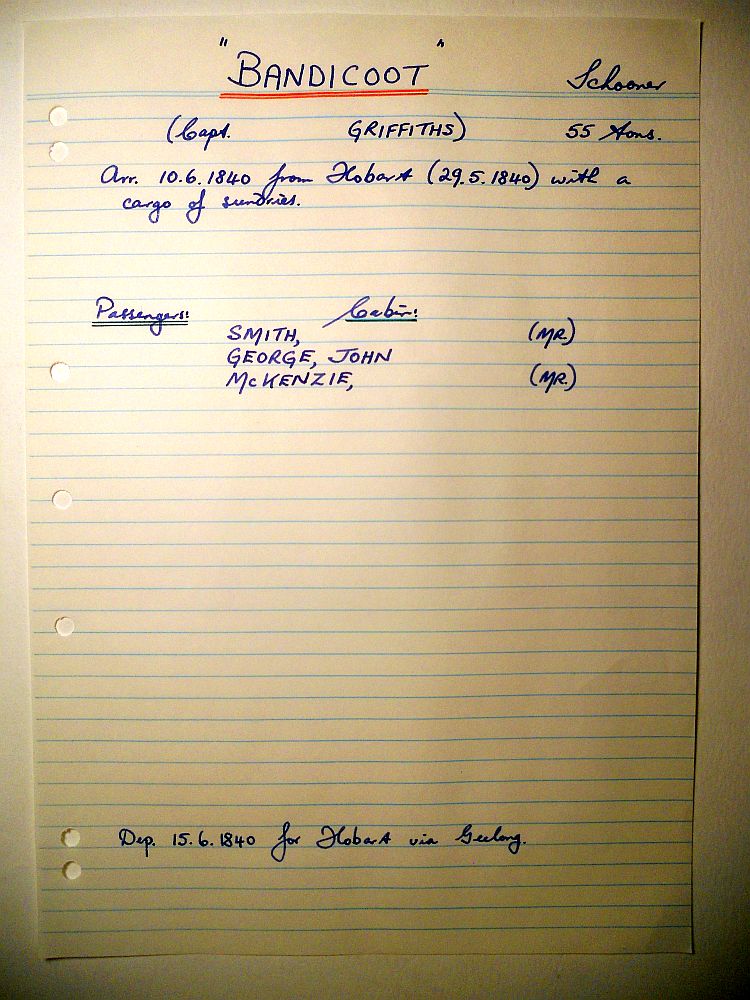 "BANDICOOT" Schooner
(Capt. GRIFFITHS) 55 tons.
Arr. 10.6.1840 from Hobart (29.5.1840) with a
cargo of sundries.
Passengers: Cabin:
SMITH, (MR.)
GEORGE, JOHN
McKENZIE, (MR.)
Dep. 15.6.1840 for Hobart via Geelong.